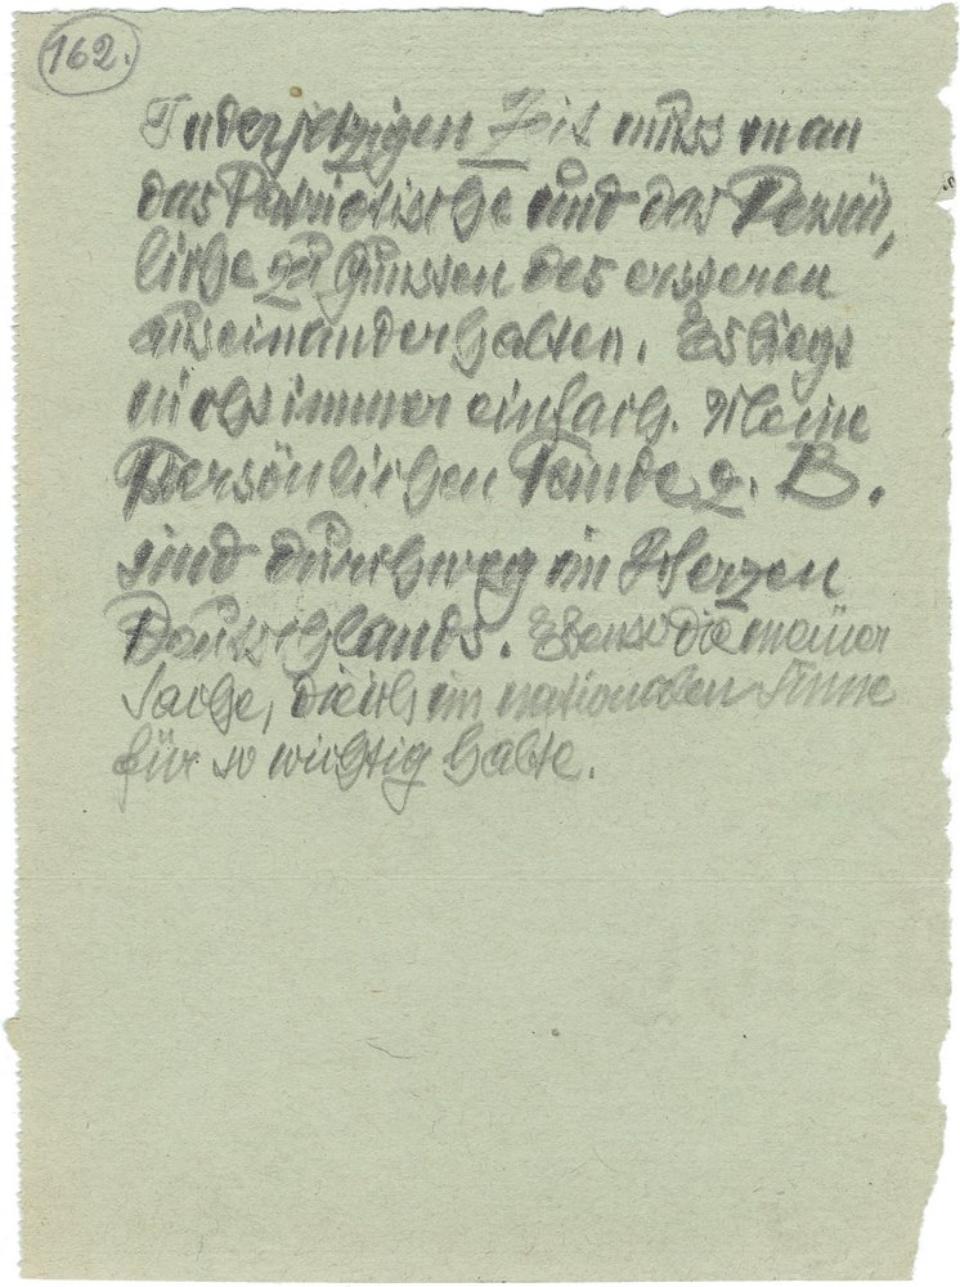 162.
In der jetzigen Zeit muss man
das Patriotische und das Persön,
liche zu Gunsten des ersteren
auseinanderhalten. Es liegt
nicht immer einfach. Meine
Persönlichen Feinde z. B.
sind durchweg im Herzen
Deutschlands. Ebenso die meiner
Sache, die ich im nationalen Sinne
für so wichtig halte.